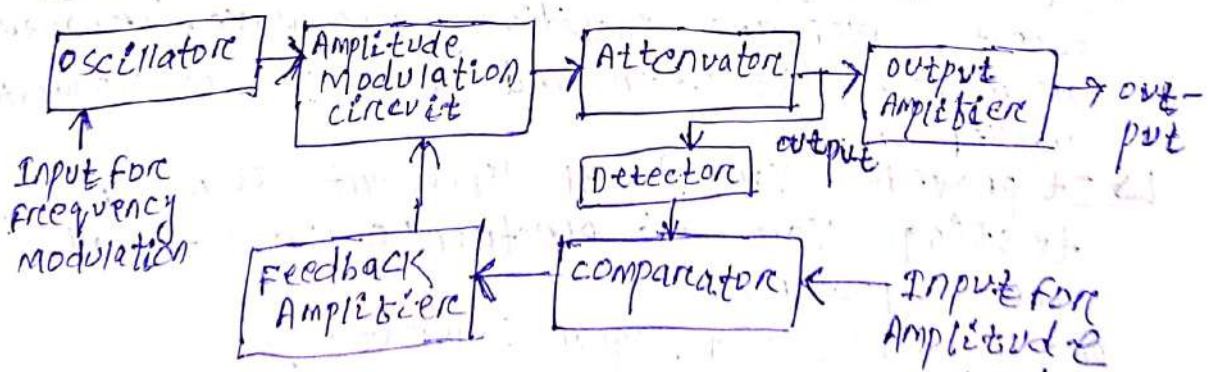 Oscillator
Amplitude
Modulation
circuit
Attenuator
output
Amplifier
out-
put
Input for
Frequency
Modulation
output
Detector
Feedback
Amplifier
comparator
Input for
Amplitude